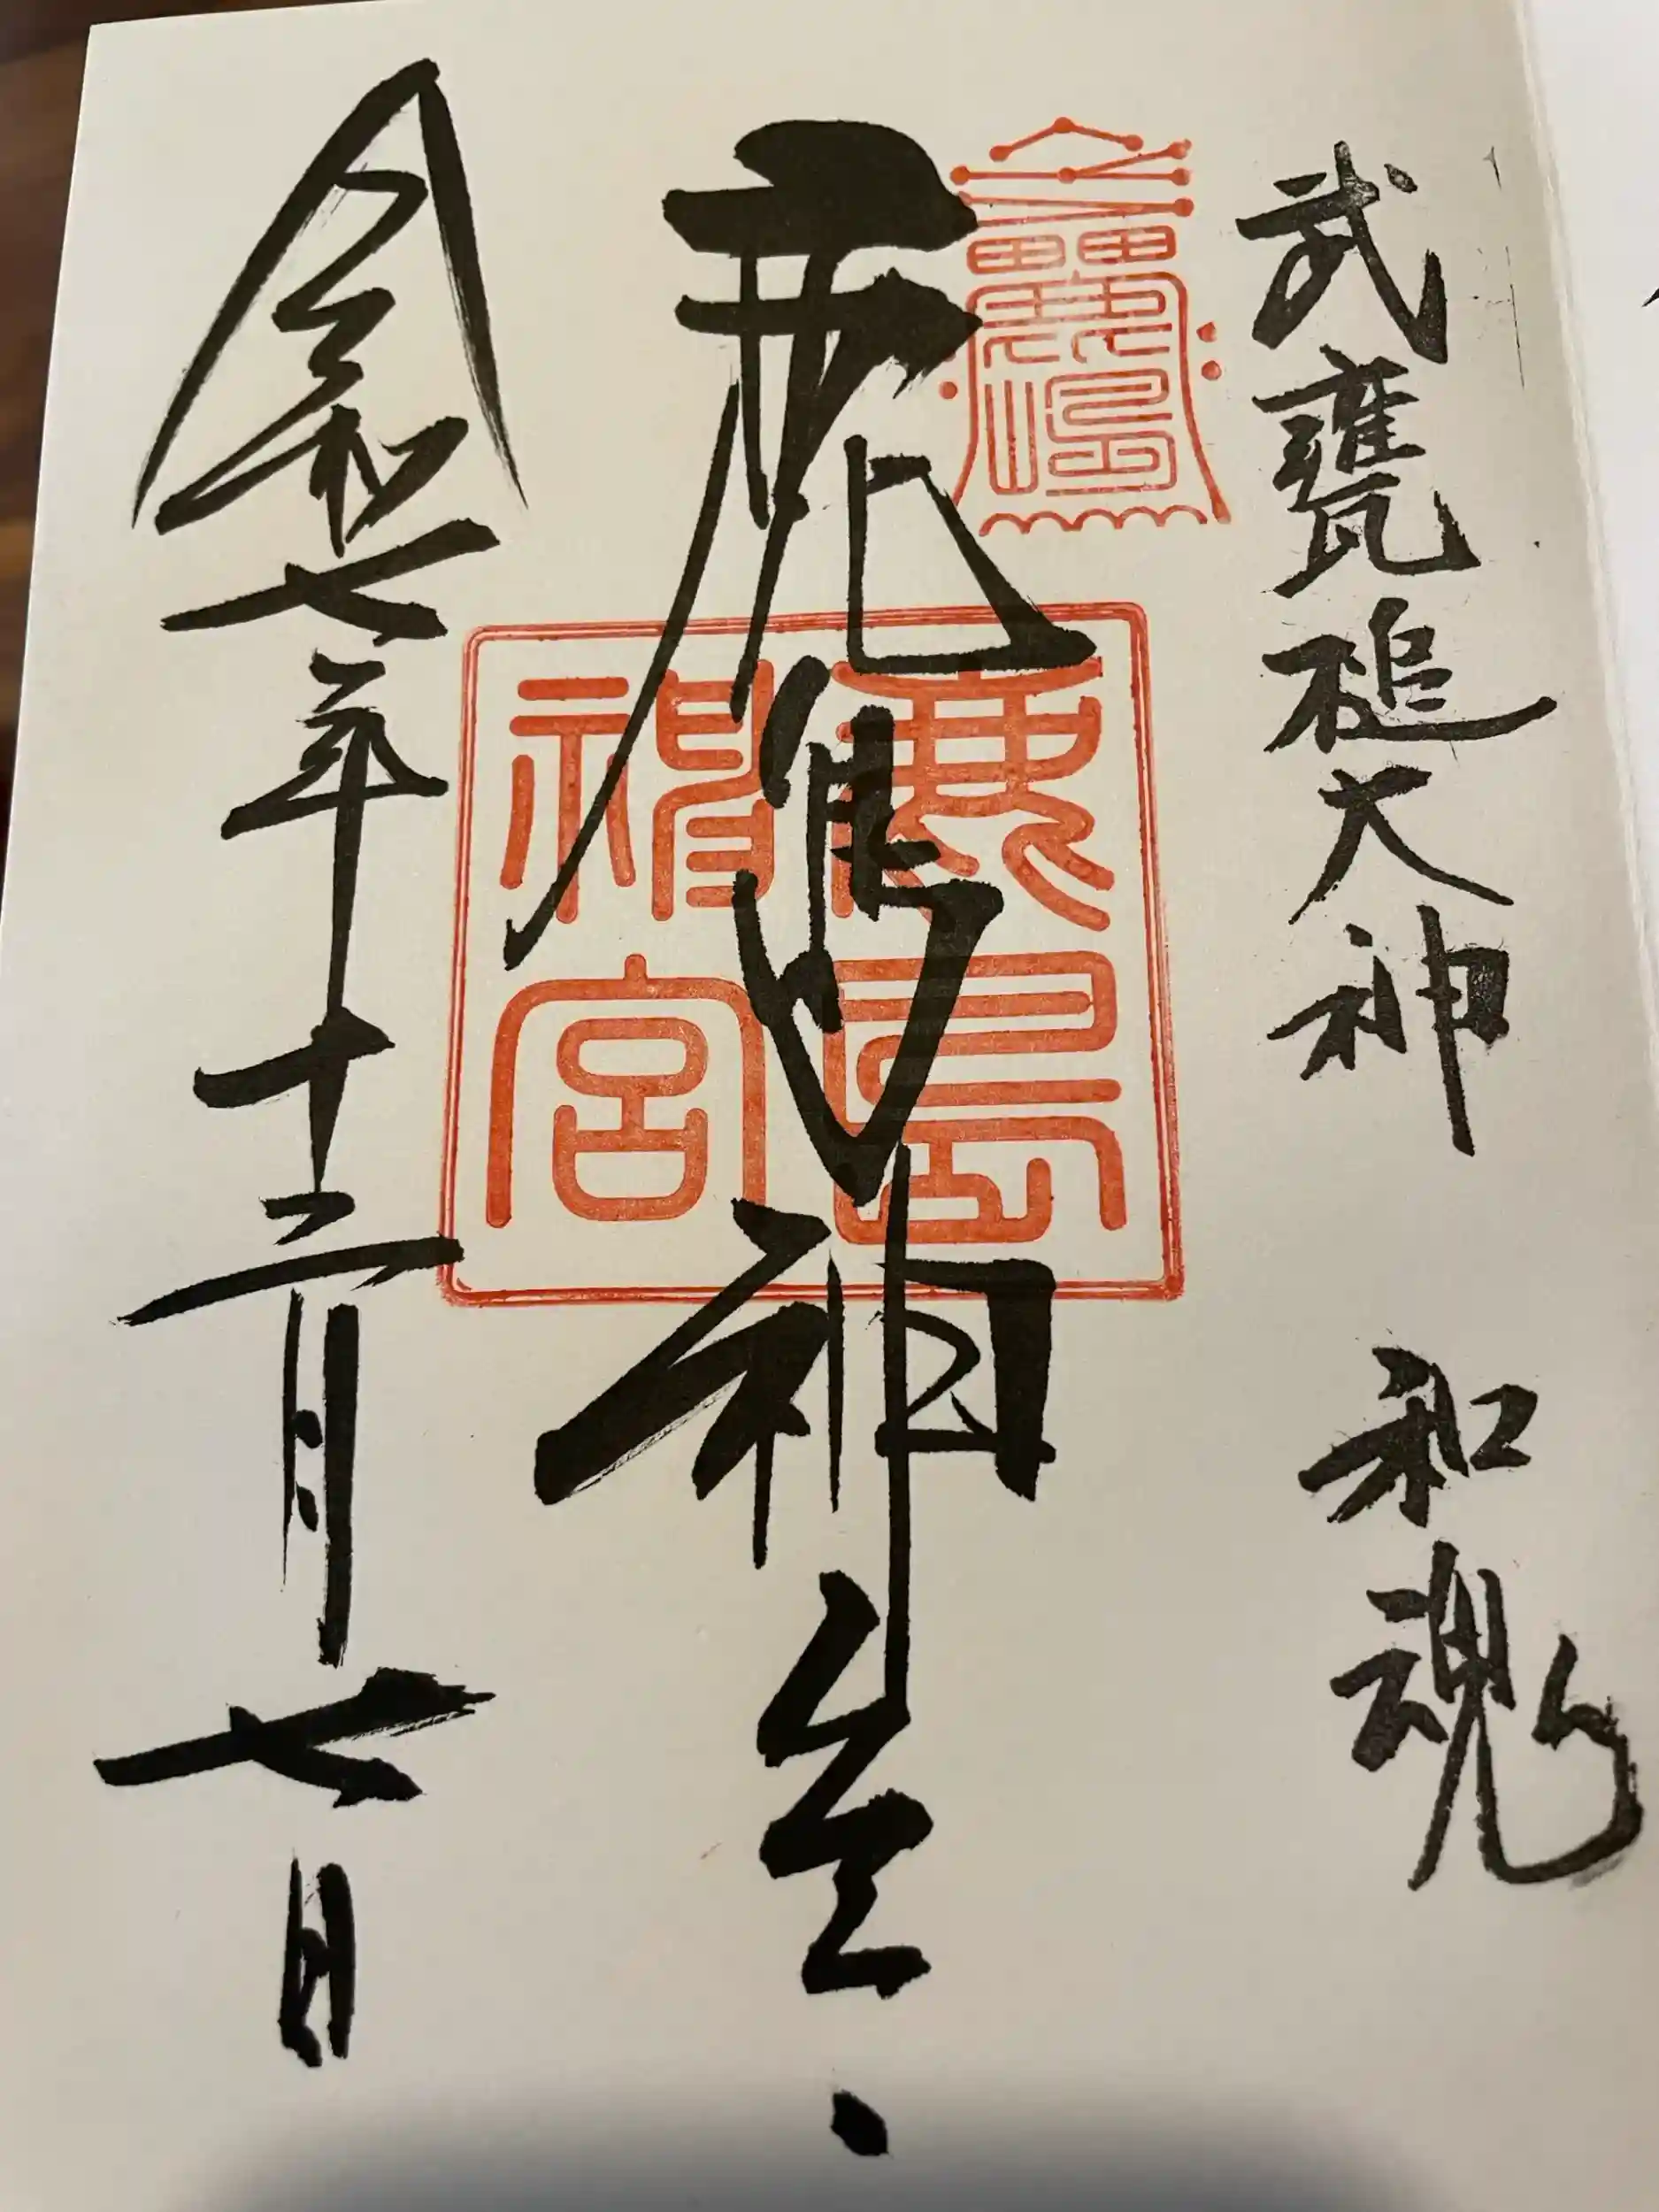 武甕槌大神 和魂
鹿島神宮
鹿島
神宮
令和七年十二月七日